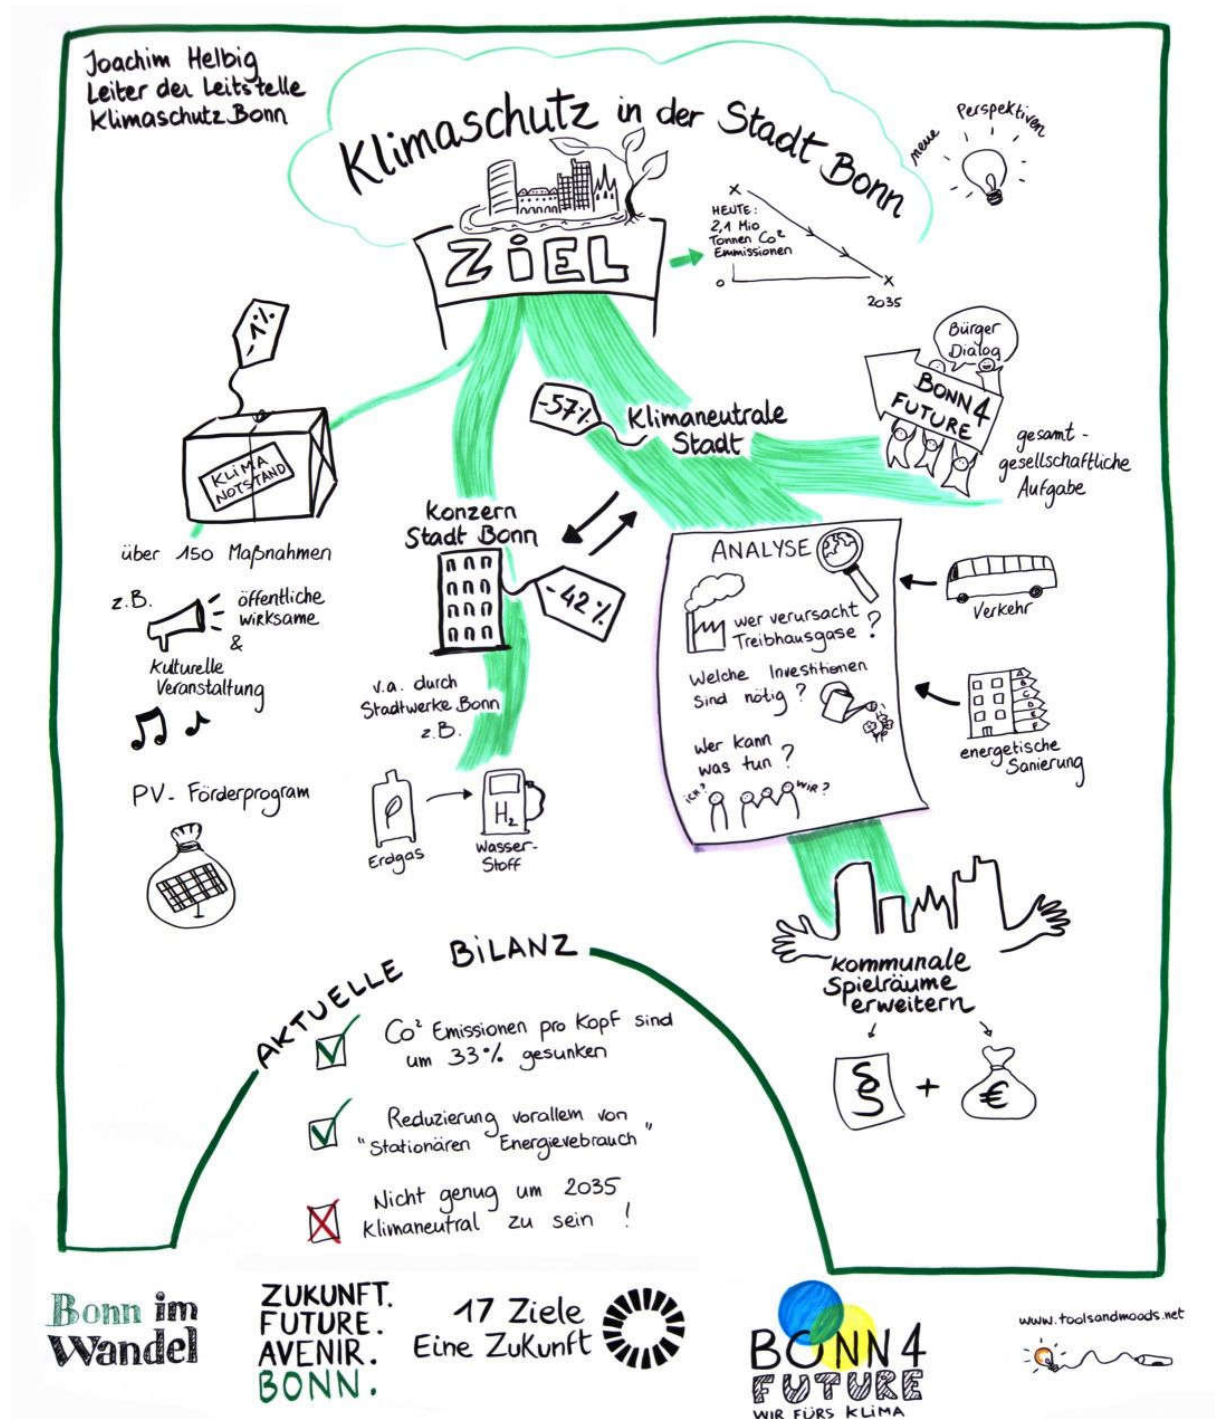 Joachim Helbig
Leiter der Leitstelle
Klimaschutz Bonn
Klimaschutz in der Stadt Bonn
neue Perspektiven
ZiEL
HEUTE:
2,1 Mio
Tonnen Co²
Emmissionen
0
2035
-1%
KLiMA
NOTSTAND
über 150 Maßnahmen
z.B.
öffentliche
wirksame
&
Kulturelle
Veranstaltung
PV- Förderprogram
Konzern
Stadt Bonn
-42%
v.a. durch
Stadtwerke Bonn
z.B.
Erdgas
H₂
Wasser-
Stoff
-57%
Klimaneutrale
Stadt
Bürger
Dialog
BONN 4
FUTURE
gesamt-
gesellschaftliche
Aufgabe
ANALYSE
wer verursacht
Treibhausgase?
Welche Investitionen
sind nötig?
wer kann
was tun?
iCH?
WiR?
Verkehr
A
B
C
D
E
F
energetische
Sanierung
kommunale
Spielräume
erweitern
§ + €
AKTUELLE BiLANZ
Co² Emissionen pro Kopf sind
um 33% gesunken
Reduzierung vorallem von
"Stationären Energievebrauch"
Nicht genug um 2035
Klimaneutral zu sein!
Bonn im
Wandel
ZUKUNFT.
FUTURE.
AVENIR.
BONN.
17 Ziele
Eine Zukunft
BONN4
FUTURE
WIR FÜRS KLIMA
www.toolsandmoods.net